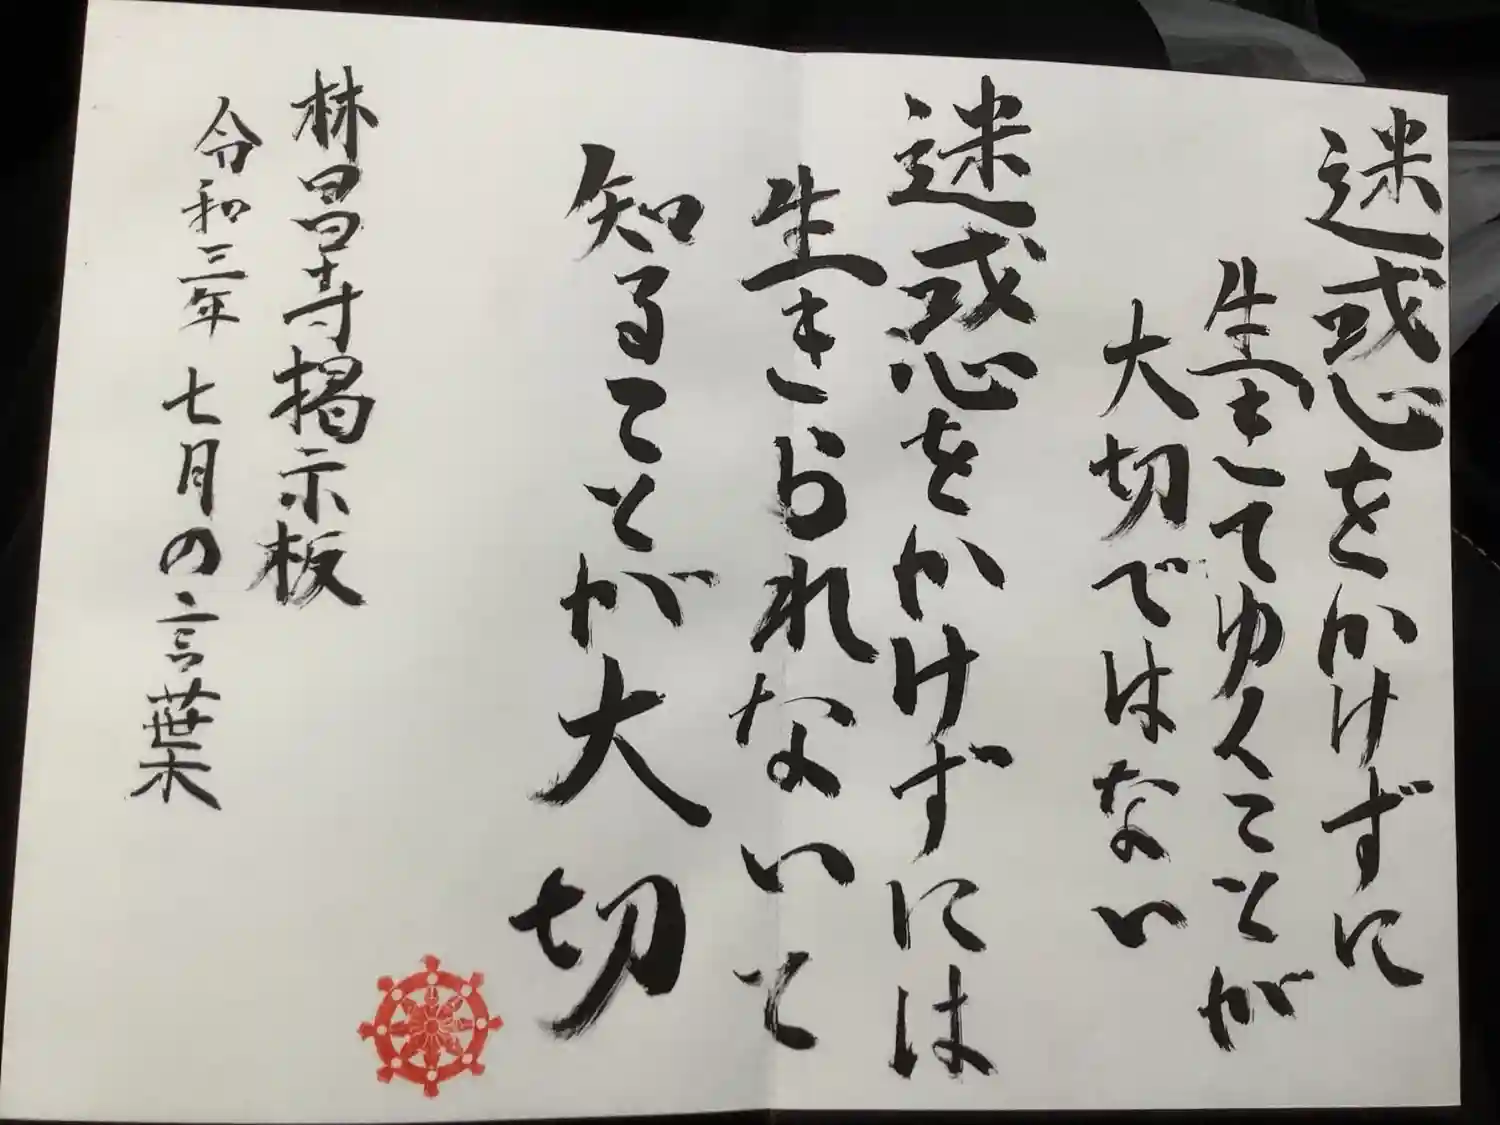 迷惑をかけずに
生きてゆくことが
大切ではない
迷惑をかけずには
生きられないと
知ることが大切
林昌寺掲示板
令和三年 七月の言葉